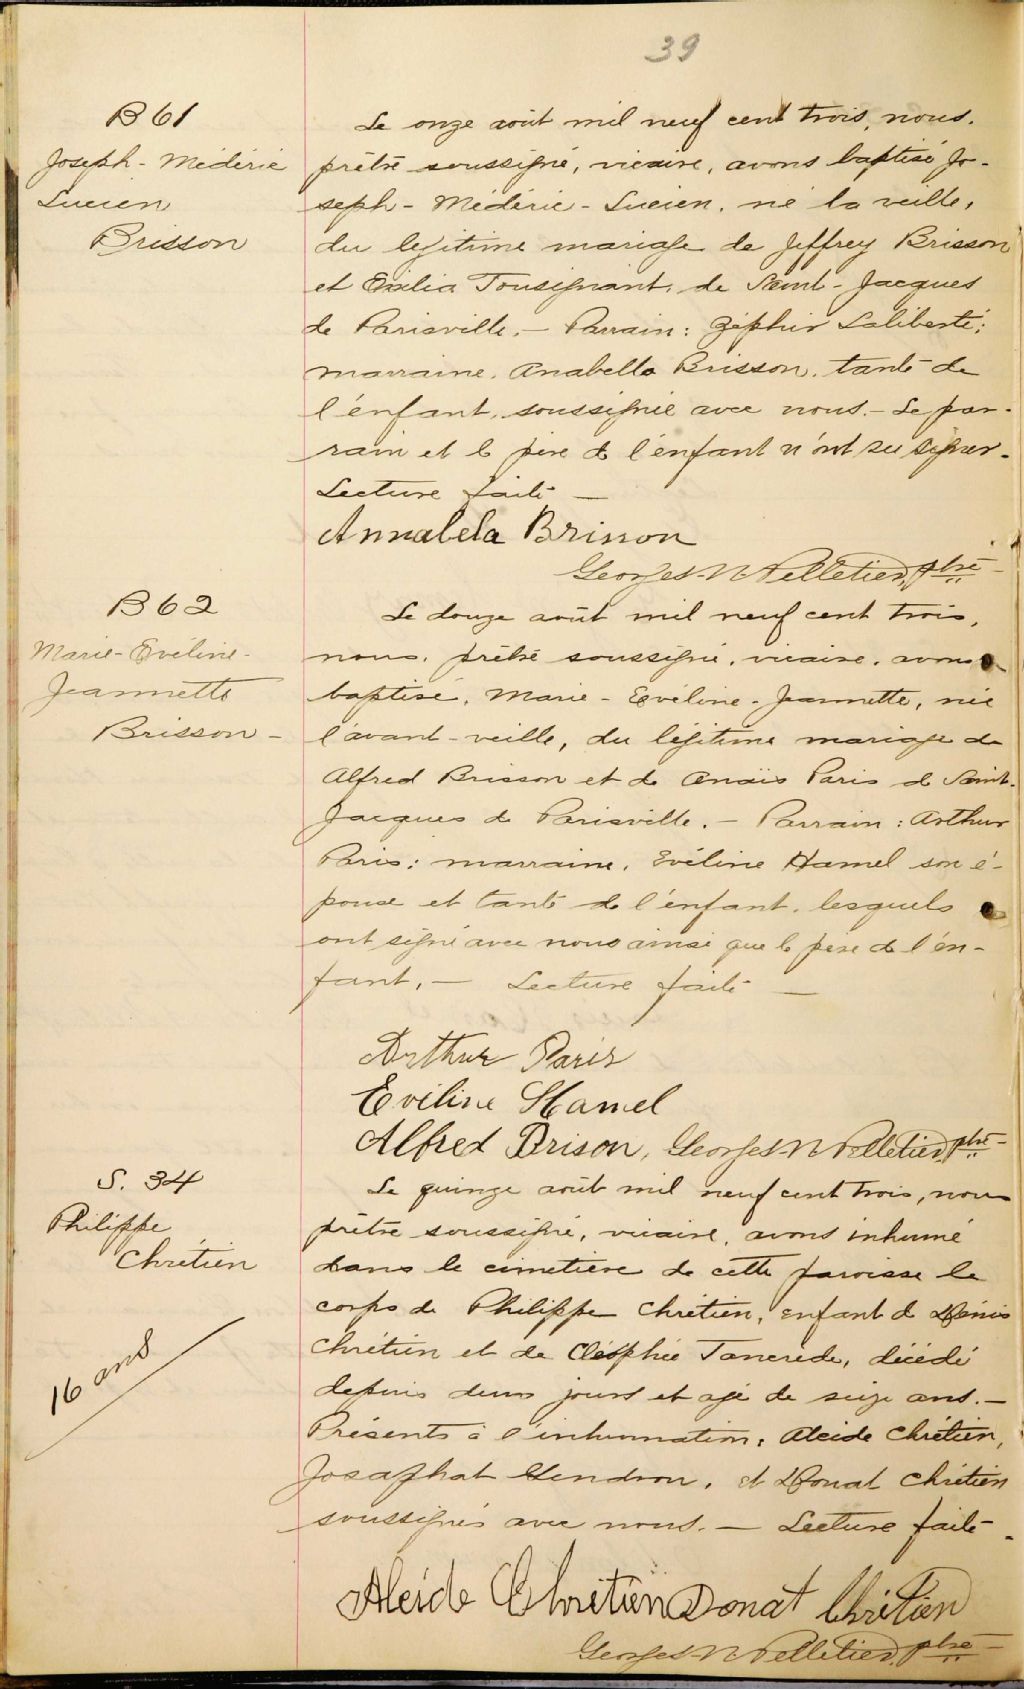 39
B 61
Joseph - Médéric
Lucien
Brisson
Le onze août mil neuf cent trois, nous,
prêtre soussigné, vicaire, avons baptisé Jo-
seph - Médéric - Lucien, né la veille,
du légitime mariage de Jeffrey Brisson
et Exilia Tousignant, de Saint - Jacques
de Parisville. — Parrain : Zéphir Laliberté ;
marraine, Anabella Brisson, tante de
l'enfant, soussignée avec nous. — Le par-
rain et le père de l'enfant n'ont su signer.
Lecture faite —
Annabela Brisson
Georges-N Pelletier, ptre
B 62
Marie - Eveline -
Jeannette
Brisson -
Le douze août mil neuf cent trois,
nous, prêtre soussigné, vicaire, avons
baptisé, Marie - Evéline - Jeannette, née
l'avant - veille, du légitime mariage de
Alfred Brisson et de Anaïs Paris de Saint-
Jacques de Parisville. — Parrain : Arthur
Paris ; marraine, Evéline Hamel son é-
pouse et tante de l'enfant, lesquels
ont signé avec nous ainsi que le père de l'en-
fant. — Lecture faite —
Arthur Paris
Eveline Hamel
Alfred Brison, Georges-N Pelletier, ptre
S. 34
Philippe
Chrétien
16 ans
Le quinze août mil neuf cent trois, nous
prêtre soussigné, vicaire, avons inhumé
dans le cimetière de cette paroisse le
corps de Philippe Chrétien, enfant de Dénis
Chrétien et de Cléophée Tancrède, décédé
depuis deux jours et agé de seize ans. —
Présents à l'inhumation : Alcide Chrétien,
Josaphat Gendron, et Donat Chrétien
soussignés avec nous. — Lecture faite -
Alcide Chrétien Donat Chrétien
Georges-N Pelletier, ptre